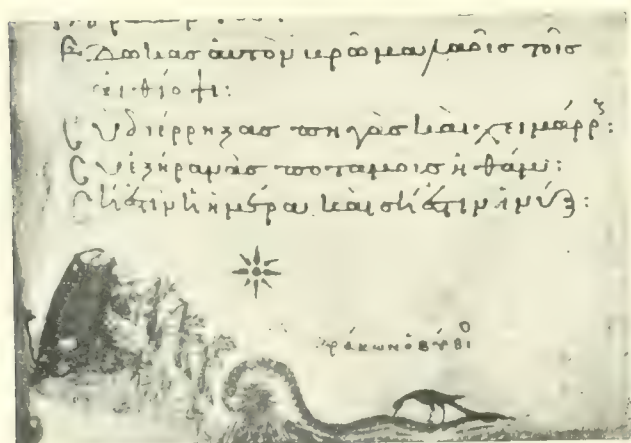 Ἔδωκας αὐτὸν βρῶμα λαοῖς τοῖς
αἰθίοψι:
Σὺ διέρρηξας πηγὰς καὶ χειμάρρ:
Σὺ ἐξήρανας ποταμοὺς ἠθάμ:
Σή ἐστιν ἡ ἡμέρα καὶ σή ἐστιν ἡ νύξ:
δράκων ὁ βύθιο